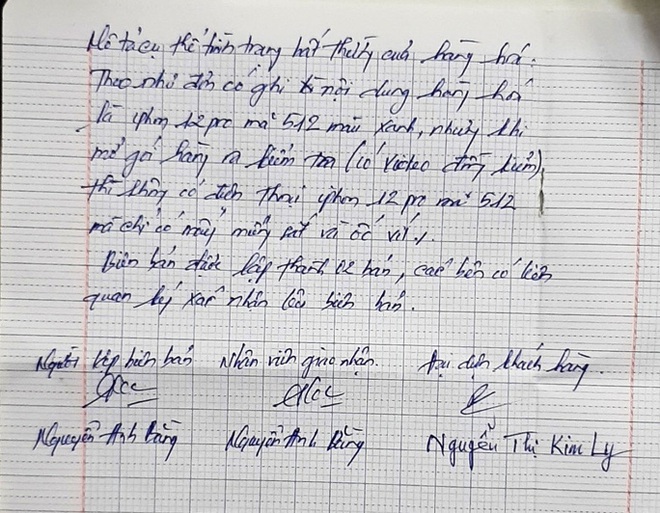 Mô tả cụ thể tình trạng bất thường của hàng hoá:
Theo như đơn có ghi nội dung hàng hoá
là iphon 12 pro max 512 màu xanh, nhưng khi
mở gói hàng ra kiểm tra (có video đồng kiểm)
thì không có điện thoại iphon 12 pro max 512
mà chỉ có mấy miếng sắt và ốc vít.
Biên bản được lập thành 02 bản, các bên có liên
quan ký xác nhận lên biên bản.
Người lập biên bản Nhân viên giao nhận. Đại diện khách hàng.
Nguyễn Anh Bằng Nguyễn Anh Bằng Nguyễn Thị Kim Ly